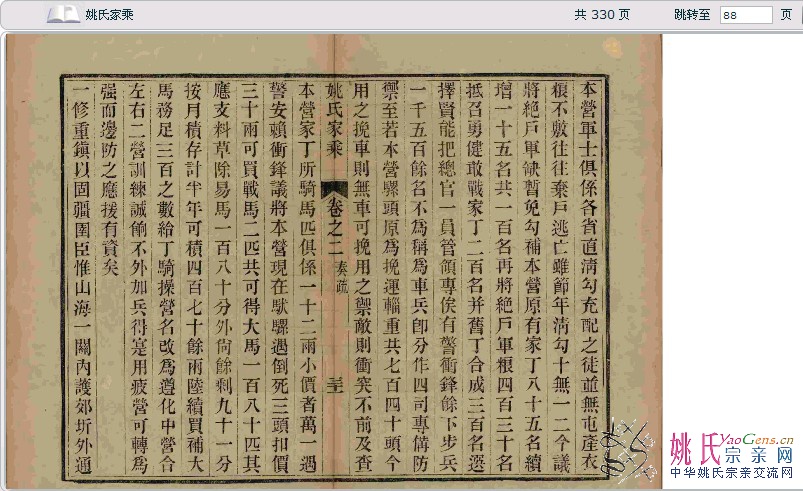 姚氏家乘
共 330 页
跳转至 88 页
本營軍士俱係各省直淸勾充配之徒並無屯產衣
糧不敷往往棄戶逃亡雖節年淸勾十無一二今議
將絕戶軍缺暫免勾補本營原有家丁八十五名續
增一十五名共一百名再將絕戶軍糧四百三十名
抵召勇健敢戰家丁二百名并舊丁合成三百名選
擇賢能把總官一員管領專俟有警衝鋒餘下步兵
一千五百餘名不爲稱爲車兵卽分作四司專備防
禦至若本營騾頭原爲挽運輜重共七百四十頭今
用之挽車則無車可挽用之禦敵則衝突不前及查
姚氏家乘 卷之二 奏疏 三十
本營家丁所騎馬匹俱係一十二兩小價者萬一遇
警安賴衝鋒議將本營現在馱騾遇倒死三頭扣價
三十兩可買戰馬二匹共可得大馬一百八十匹其
應支料草除易馬一百八十分外尙餘剩九十一分
按月積存計半年可積四百七十餘兩陸續買補大
馬務足三百之數給丁騎操營名改爲遵化中營合
左右二營訓練誠餉不外加兵得寔用疲營可轉爲
强而邊防之應援有資矣
一修重鎭以固疆圉臣惟山海一關內護郊圻外通
姚氏YaoGens.cn
宗亲网
中华姚氏宗亲交流网